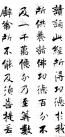 讀誦此經所得功德於我
所供養諸佛功德百分不
及一千萬億分乃至算數
譬喻所不能及須菩提若